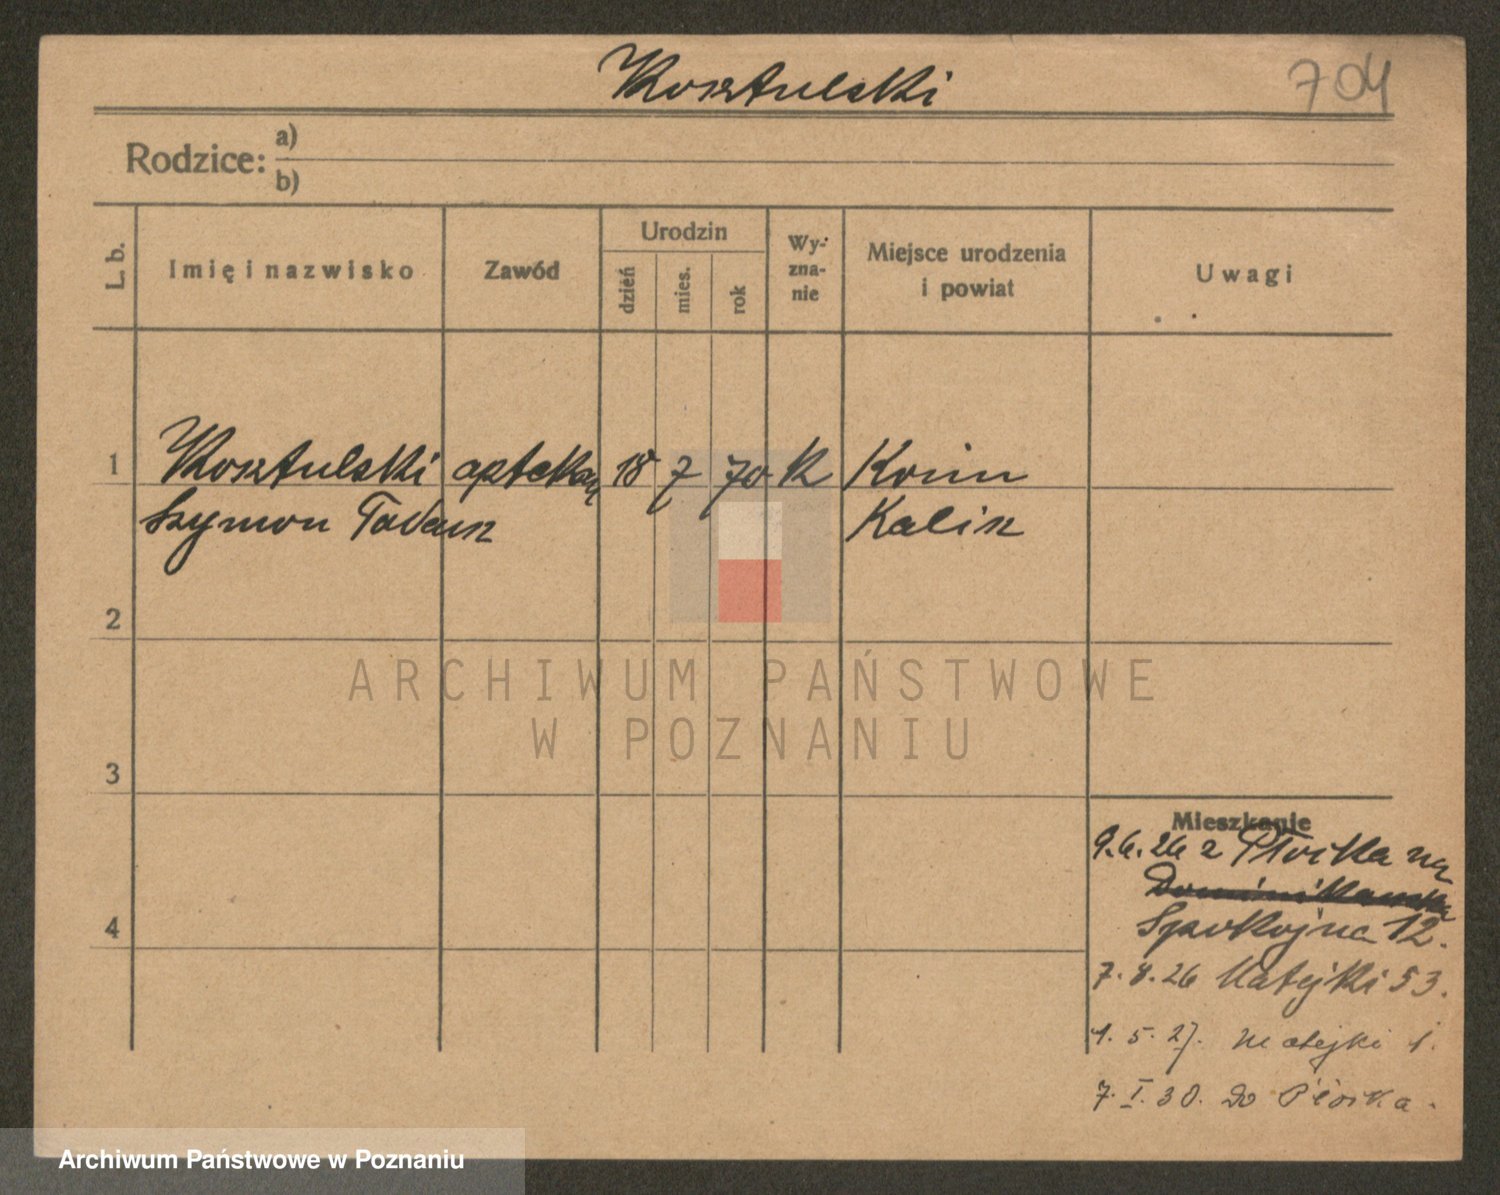 Kosztulski
704
Rodzice: a)
b)
L. b.
Imię i nazwisko
Zawód
Urodzin
dzień
mies.
rok
Wy-
zna-
nie
Miejsce urodzenia
i powiat
Uwagi
1
Kosztulski aptekarz 18 7 70 K
Szymon Tadeusz Kalisz
2
ARCHIWUM PAŃSTWOWE
W POZNANIU
3
Mieszkanie
9.6.26 z Płocka na
Dominikańska
4
Spokojna 12.
7.8.26 Matejki 53.
1.5.27. Matejki 1.
7.I.30. do Płocka.
Archiwum Państwowe w Poznaniu